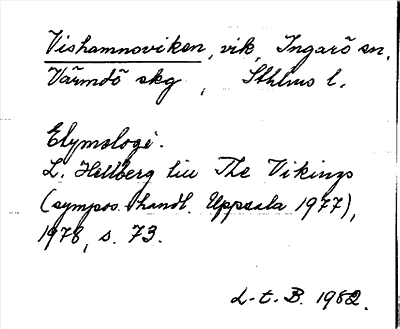 Vishamnsviken, vik, Ingarö sn,
Värmdö skg, Sthlms l.
Etymologi.
L. Hellberg in The Vikings
(sympos. handl. Uppsala 1977),
1978, s. 73.
L-t. B. 1982.